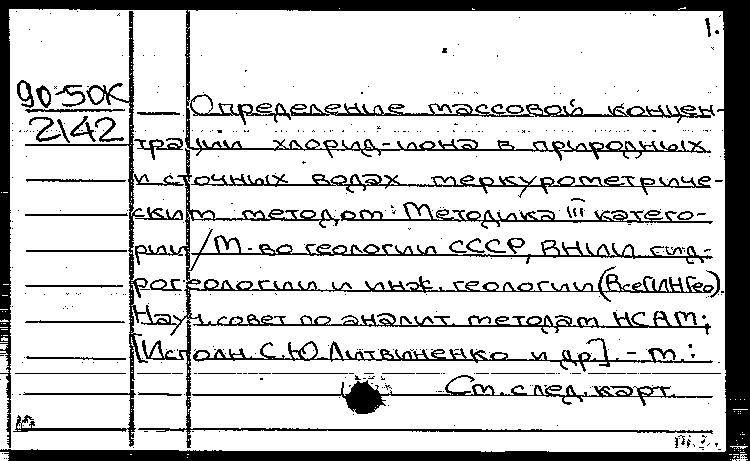 1.
90-50К
2142
Определение массовой концен-
трации хлорид-иона в природных
и сточных водах меркурометриче-
ским методом: Методика III катего-
рии / М-во геологии СССР, ВНИИ гид-
рогеологии и инж. геологии (ВсеГИНГео).
Науч. совет по аналит. методам НСАМ;
[Исполн. С.Ю. Литвиненко и др.]. - М.:
См. след. карт.